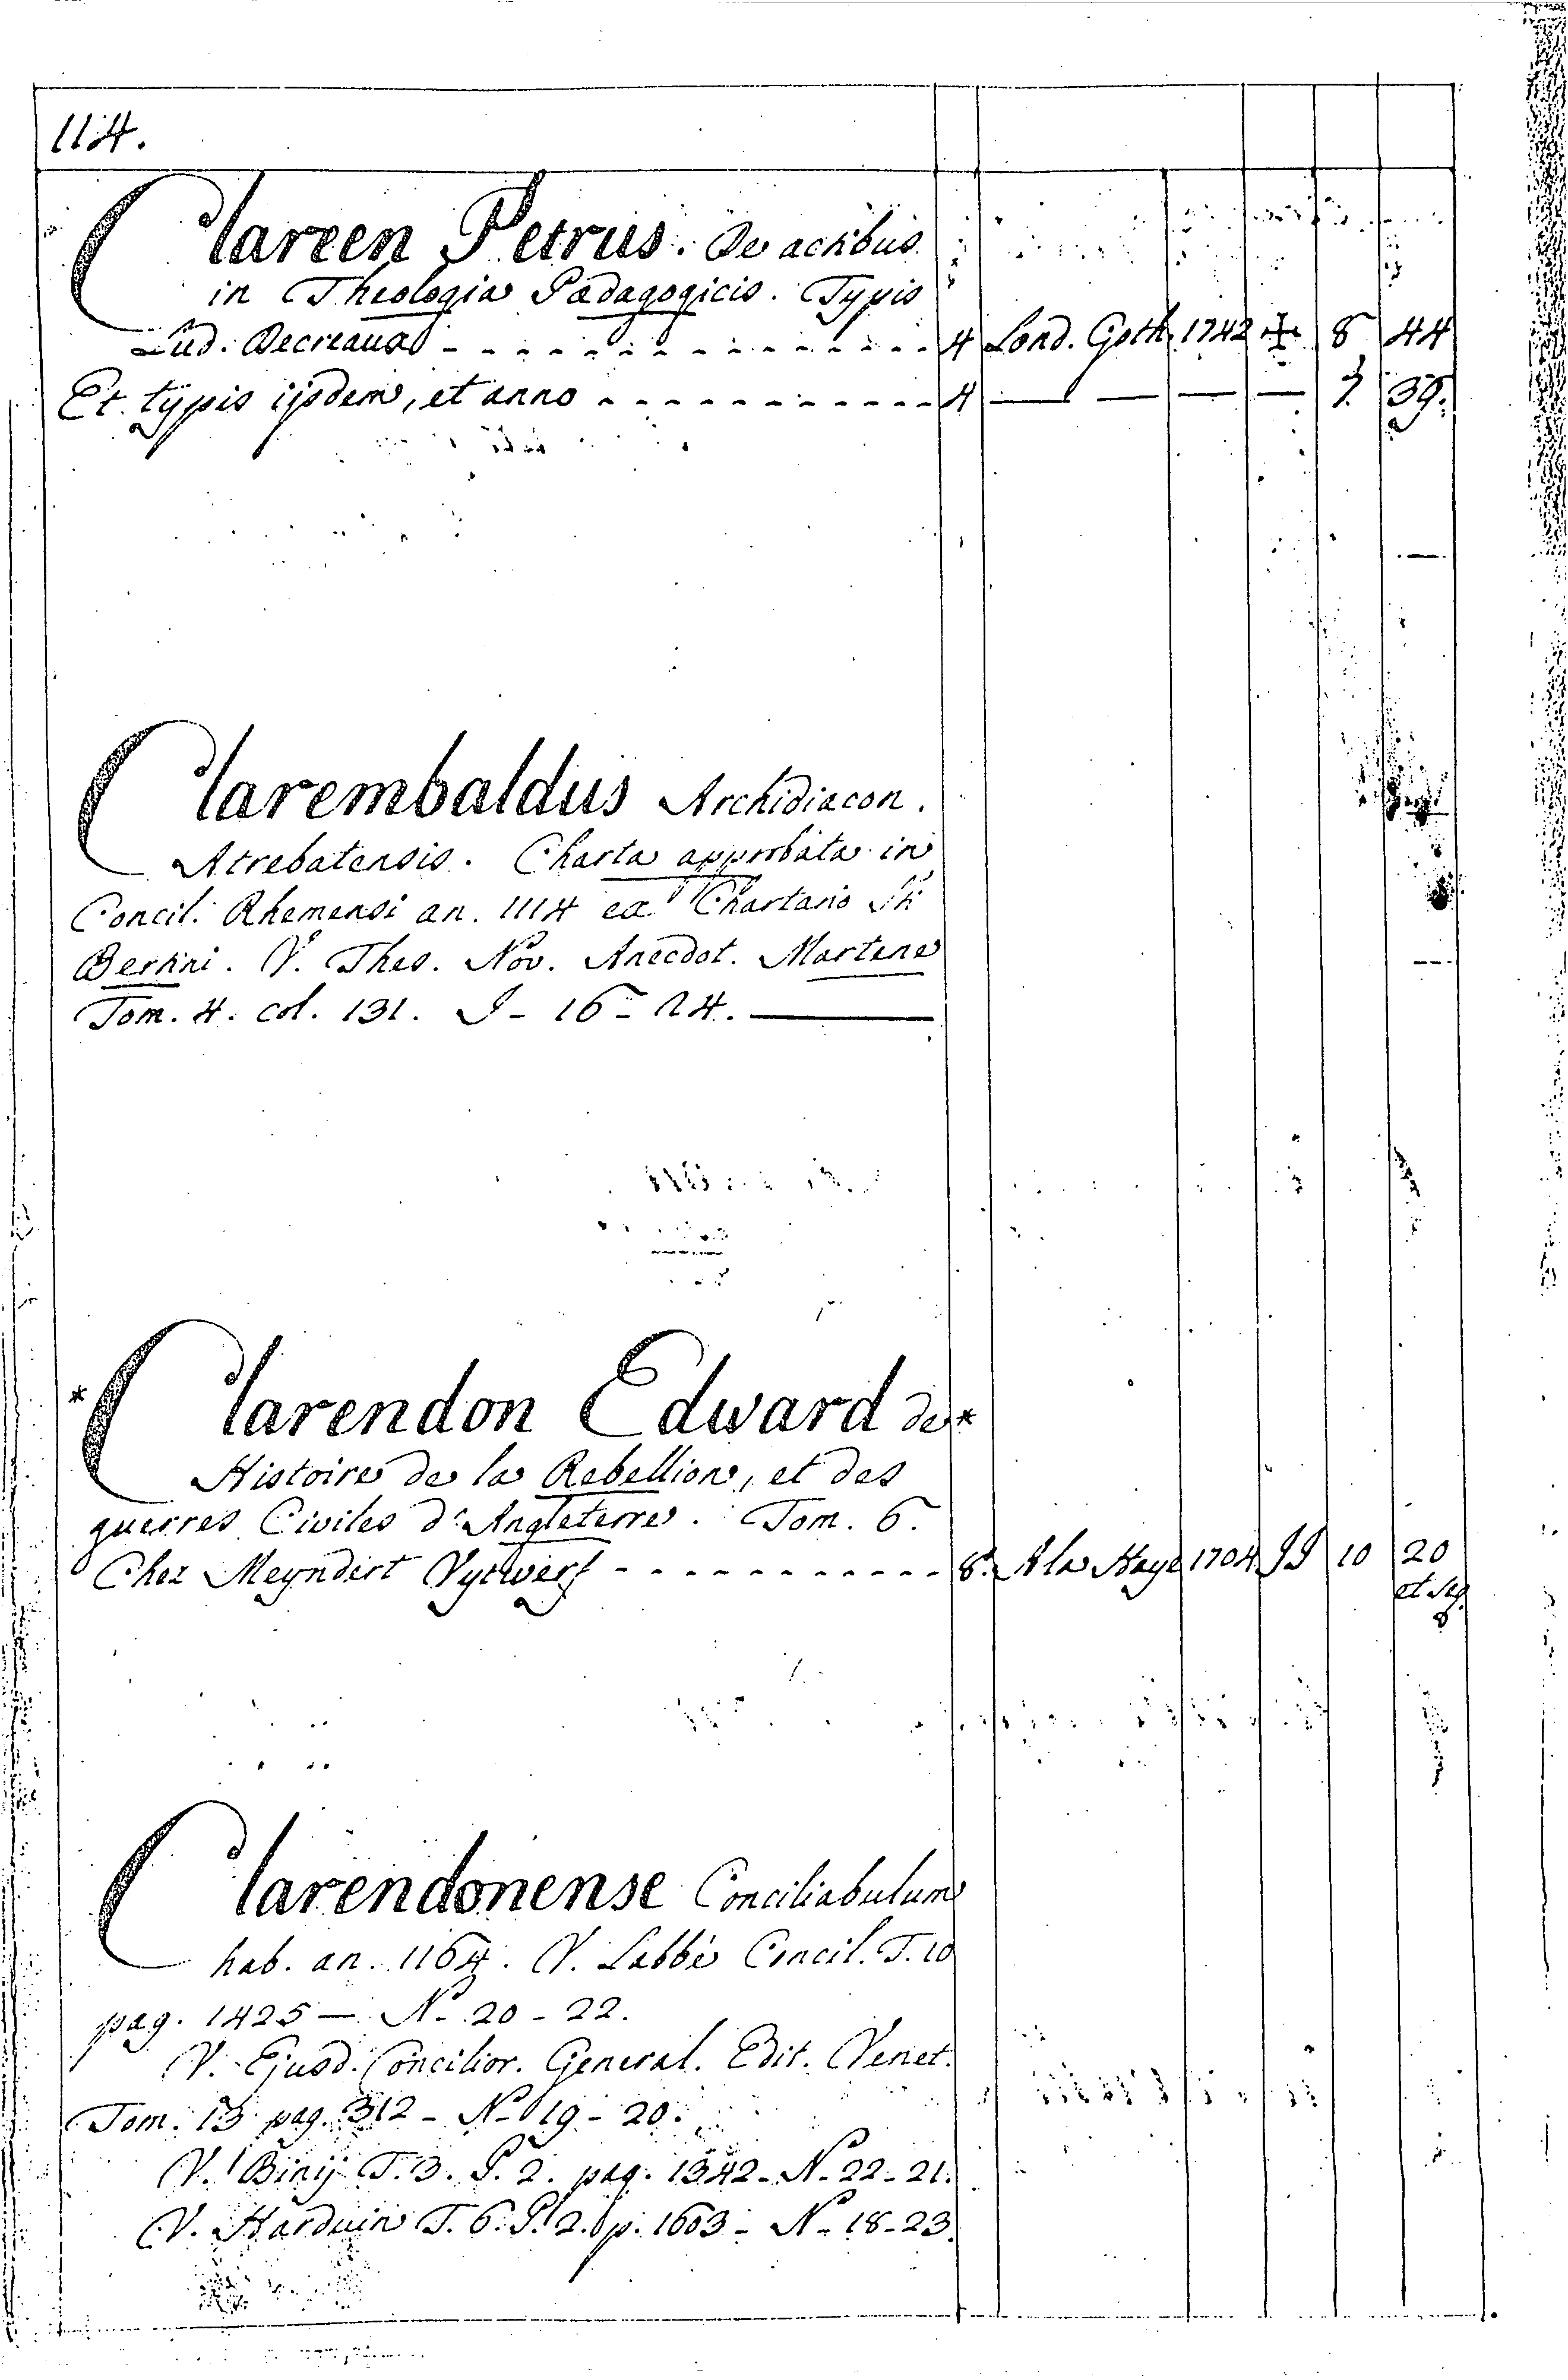 114.
Clareen Petrus. De actibus
in Theologia Pædagogicis. Typis
Lud. Decreaux - - - - - - - - - - - - - 4 Lond. Goth. 1742 ✠ 8 44
Et typis ijsdem, et anno - - - - - - - - - - - 4 — — — — 7 39.
Clarembaldus Archidiacon.
Atrebatensis. Charta approbata in
Concil. Rhemensi an. 1114 ex Chartario Sti
Bertini. V. Thes. Nov. Anecdot. Martene
Tom. 4. col. 131. I - 16 - 24. ———
* Clarendon Edward de *
Histoire de la Rebellion, et des
guerres Civiles d'Angleterre. Tom. 6.
Chez Meyndert Vytwerf - - - - - - - - - - - 8. A la Haye 1704 II 10 20
et seq.
Clarendonense Conciliabulum
hab. an. 1164. V. Labbé Concil. T. 10
pag. 1425 — N - 20 - 22.
V. Ejusd. Concilior. General. Edit. Venet.
Tom. 13 pag. 312 - N - 19 - 20.
V. Binij T. 3. P. 2. pag. 1342 - N - 22 - 21.
V. Harduin T. 6. P. 2. p. 1603 - N - 18 - 23.